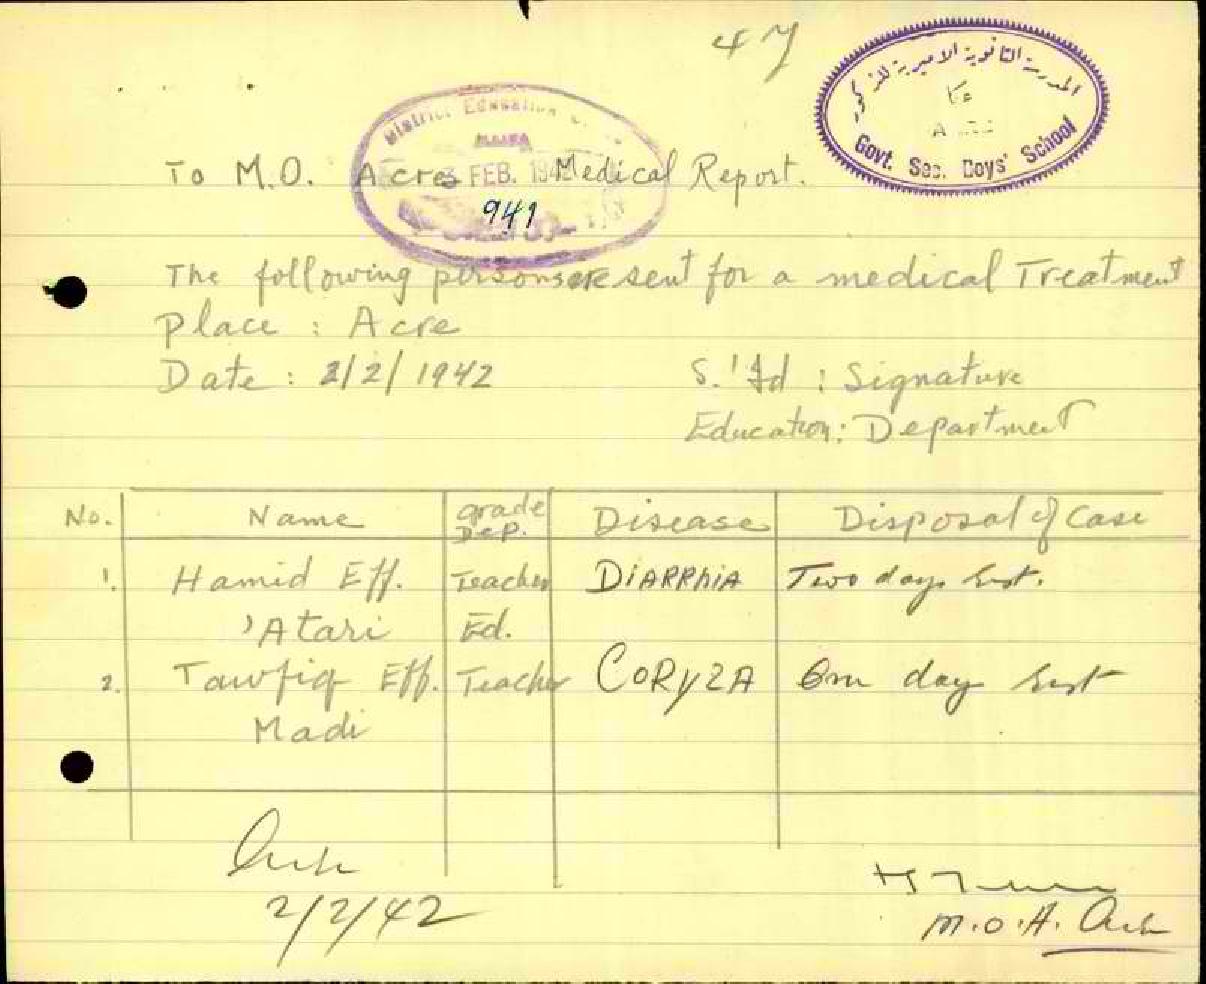 47
المدرسة الثانوية الاميرية للذكور
عكا
ACRE
Govt. Sec. Boys' School
District Education
HAIFA
3 FEB. 194
941
To M.O. Acre Medical Report.
The following persons are sent for a medical Treatment
Place : Acre
Date : 2/2/1942 S.'gd : Signature
Education: Department
No. Name grade Dep. Disease Disposal of Case
1. Hamid Eff. Teacher DiARRhiA Two days rest.
'Atari Ed.
2. Tawfiq Eff. Teacher CoRyZA One day rest
Madi
Acre
2/2/42
M.O.H. Acre